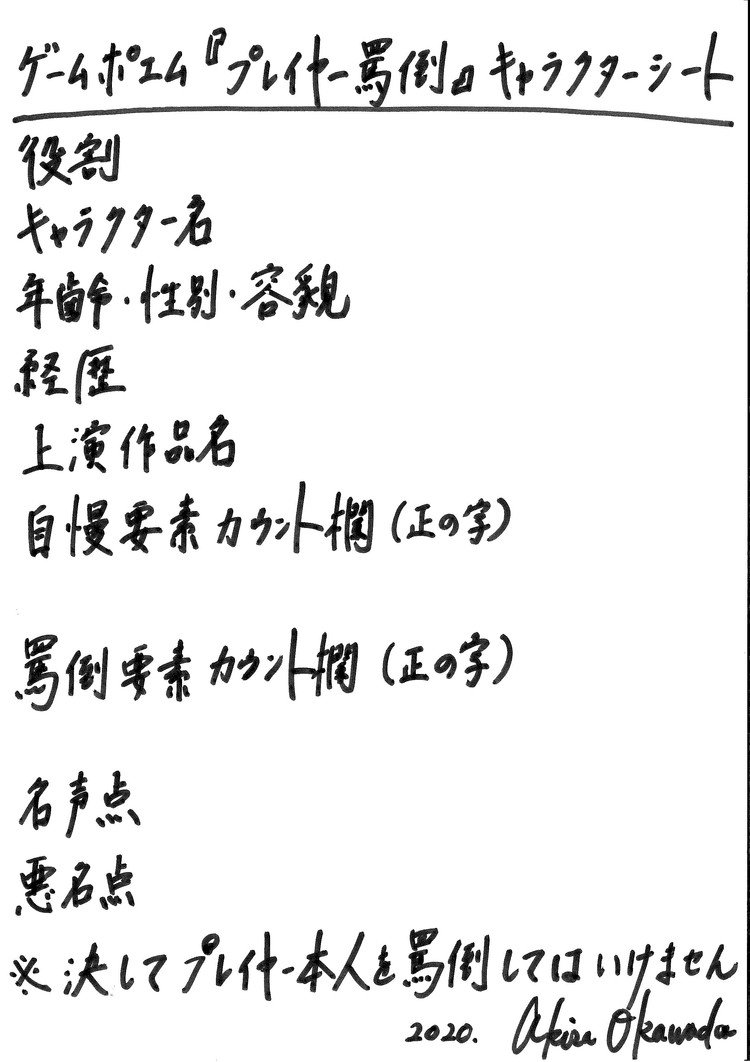 ゲームポエム『プレイヤー罵倒』キャラクターシート
役割
キャラクター名
年齢・性別・容貌
経歴
上演作品名
自慢要素カウント欄(正の字)
罵倒要素カウント欄(正の字)
名声点
悪名点
※決してプレイヤー本人を罵倒してはいけません
2020. Akira Okawada